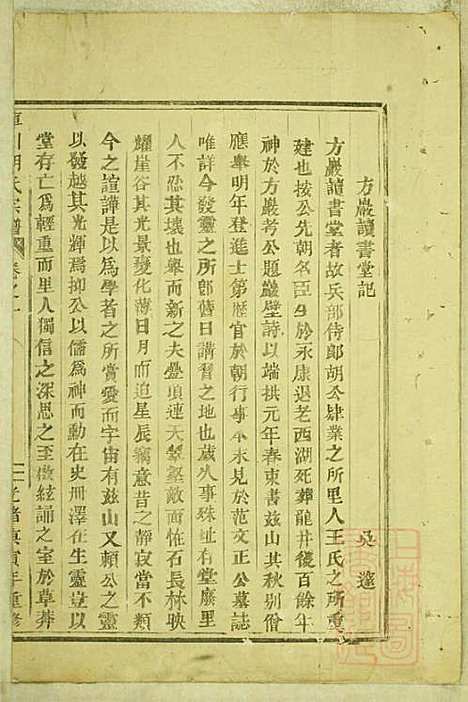 方巖讀書堂記
吳邃
方巖讀書堂者故兵部侍郎胡公肄業之所里人王氏之所重
建也按公先朝名臣生於永康退老西湖死葬龍井後百餘年
神於方巖考公題巖壁詩以端拱元年春束書茲山其秋別僧
應舉明年登進士第歷官於朝行事本末見於范文正公墓誌
唯詳今發靈之所郎舊日講習之地也歲久事殊址有堂廢里
人不忍其壞也舉而新之夫疊項連天翠壑敵而怪石長林映
耀崖谷其光景變化薄日月而迫星辰竊意昔之靜寂當不類
今之諠譁是以為學者之所賞愛而宇宙有茲山又賴公之靈
以發越其光輝焉抑公以儒為神而動在史冊澤在生靈豈以
堂存亡為輕重而里人獨信之深思之至傲絃誦之室於草莽
胡氏宗譜
卷之一
光緒庚寅年重修